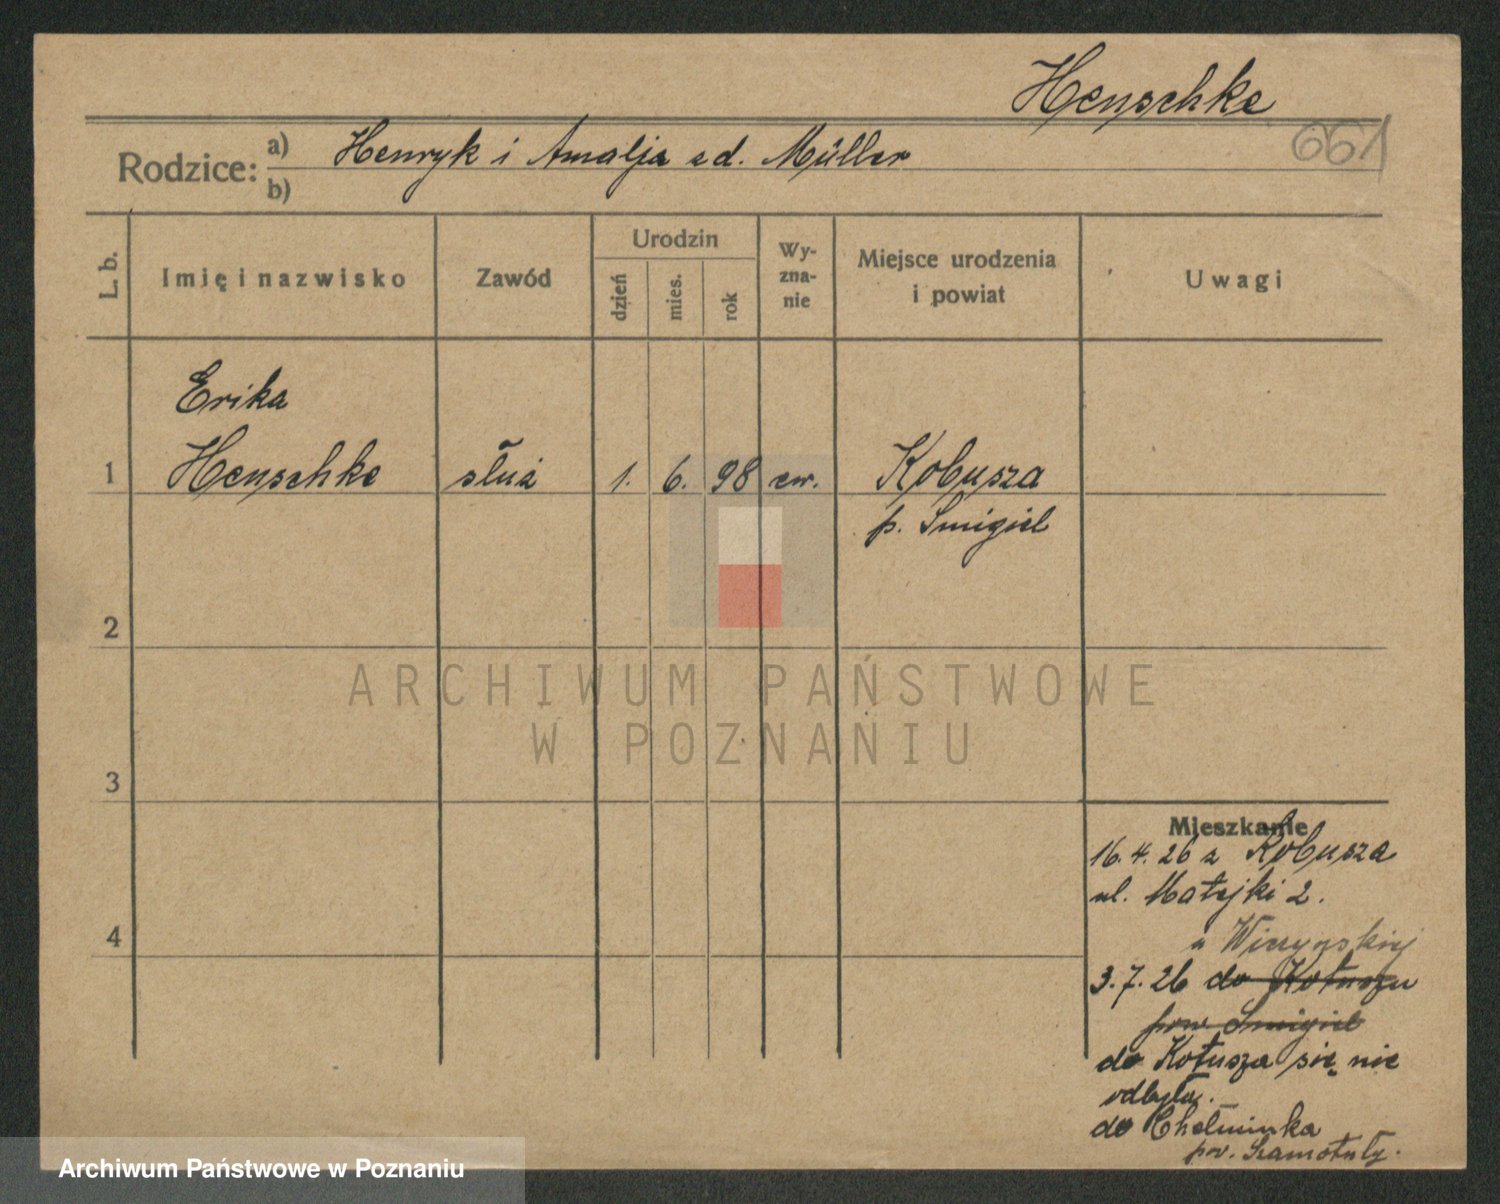 Henschke
661
Rodzice: a) Henryk i Amalja zd. Müller
b)
L. b.
Imię i nazwisko
Zawód
Urodzin
dzień
mies.
rok
Wy-
zna-
nie
Miejsce urodzenia
i powiat
Uwagi
Erika
1 Henschke służ 1. 6. 98 ew. Kobusza
p. Smigiel
2
3
4
ARCHIWUM PAŃSTWOWE
W POZNANIU
Mieszkanie
16.4.26 z Kobusza
ul. Matejki 2.
u
3.7.26 do Kotuszu
pow Smigiel
do Kotusza się nie
odbyła.
do Chełminka
pow. Szamotuły.
Archiwum Państwowe w Poznaniu